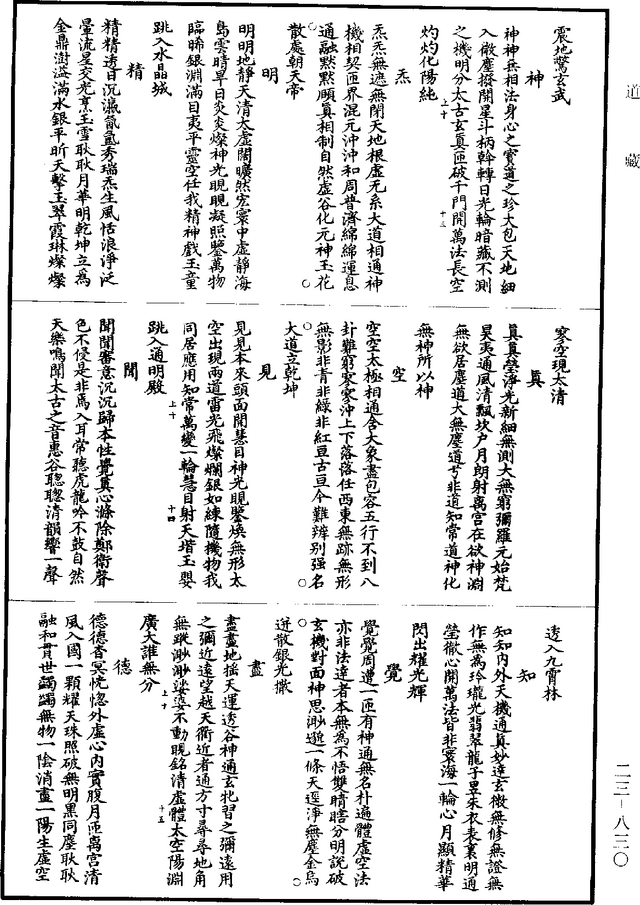 道藏
震地警玄武
神
神神無相法身心之寶道之珍大包天地細
入微塵撥開星斗柄斡轉日光輪暗藏不測
之機明分太古玄真匝破千門開萬法長空
灼灼化陽純
上十
十五
炁
炁炁無遮無閉天地根虛无系大道相通神
機相契匝界混元沖沖和周普濟綿綿運息
通融默默頤真相制自然虛谷化元神玉花
散處朝天帝
明
明明地靜天清太虛闊曠然宏寰中虛靜海
島雲晴早日炎炎燦神光晛晛凝照鑒萬物
臨晞銀淵滿目夷平靈空任我精神戲玉童
跳入水晶城
精
精精透日沉瀛氤氳秀瑞炁生風恬浪淨泛
暈流星交光烹玉雪耿耿月華明乾坤立為
金鼎澍溢滿水銀平昕天擊玉翠霞琳燦燦
寥空現太清
真
真真瑩淨光新細無測大無窮彌羅元始梵
昊夷通風清飄坎户月朗射离宫在欲神淵
無欲居塵道大無塵道兮非道知常道神化
無神所以神
空
空空太極相通含大象盡包容五行不到八
卦難窮寥寥沖上下落落任西東無跡無形
無影非青非綠非紅亘古亘今難辨别强名
大道立乾坤
見
見見本來頭面開慧目神光晛鑒煥無形太
空出現兩道雷光飛燦爛銀如練隨機物我
同居應用知常萬變一輪慧目射天堦玉嬰
跳入通明殿
上十
十四
聞
聞聞審意沉沉歸本性覺真心滌除鄭衛聲
色不侵是非焉入耳常聽虎龍吟不鼓自然
天樂鳴聞太古之音惠谷聰聰清韻響一聲
透入九霄林
知
知知內外天機通真妙達玄微無修無證無
作無為玲瓏光翡翠龍子昱朱衣表裏明通
瑩徹心開萬法皆非寰海一輪心月顯精華
閃出耀光輝
覺
覺覺周遭一匝有神通無名朴遍體虛空法
亦非法達者本無為不悟雙睛瞎分明說破
玄機對面神思渺邈一條天遥淨無塵金烏
迸散銀光撒
盡
盡盡地搖天運透谷神通玄牝習之彌遠用
之彌近遠望越天衢近者通方寸尋尋地角
無蹤渺渺婆娑不動晛銘清虛體太空陽淵
廣大誰無分
上十
十五
德
德德杳冥恍惚外虛心內實腹月匝离宫清
風入國一顆耀天珠照破無明黑同塵耿耿
融和貫世蠲蠲無物一陰消盡一陽生虛空
二三—八三〇